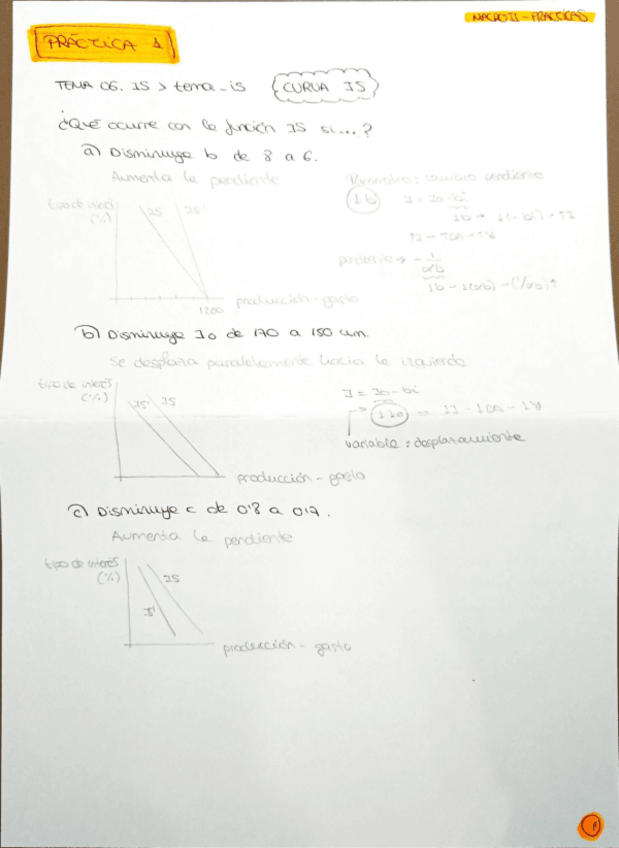 MACRO II - PRACTICAS
PRÁCTICA 1
TEMA 06. IS > tema_is CURVA IS
¿Qué ocurre con la función IS si...?
a) Disminuye b de 8 a 6.
Aumenta la pendiente
Parámetro: cambio pendiente
tipo de interés
(%)
IS IS'
↓b I = Io - bi
pendiente → - 1/αb
1200
producción - gasto
b) Disminuye Io de 170 a 150 um.
Se desplaza paralelamente hacia la izquierda
tipo de interés
(%)
IS' IS
I = Io - bi
↓Io
variable: desplazamiento
producción - gasto
c) Disminuye c de 0'8 a 0'7.
Aumenta la pendiente
tipo de interés
(%)
IS
producción - gasto